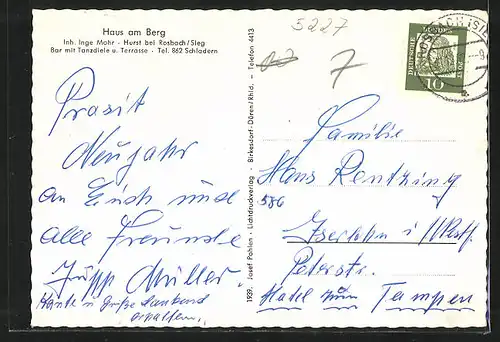 Haus am Berg
Inh. Inge Mohr - Hurst bei Rosbach/Sieg
Bar mit Tanzdiele u. Terrasse - Tel. 862 Schladern
Prosit
Neujahr
an Euch und
alle Freunde
Jupp Müller
Karte u. Grüße dankend
erhalten.
1939. Josef Pohlen - Lichtdruckverlag - Birkesdorf-Düren/Rhld. - Telefon 4413
5227
7
DEUTSCHE
BUNDESPOST
10
Familie
Hans Rentzing
586
Iserlohn i/Westf.
Peterstr.
Hotel zum Tampen